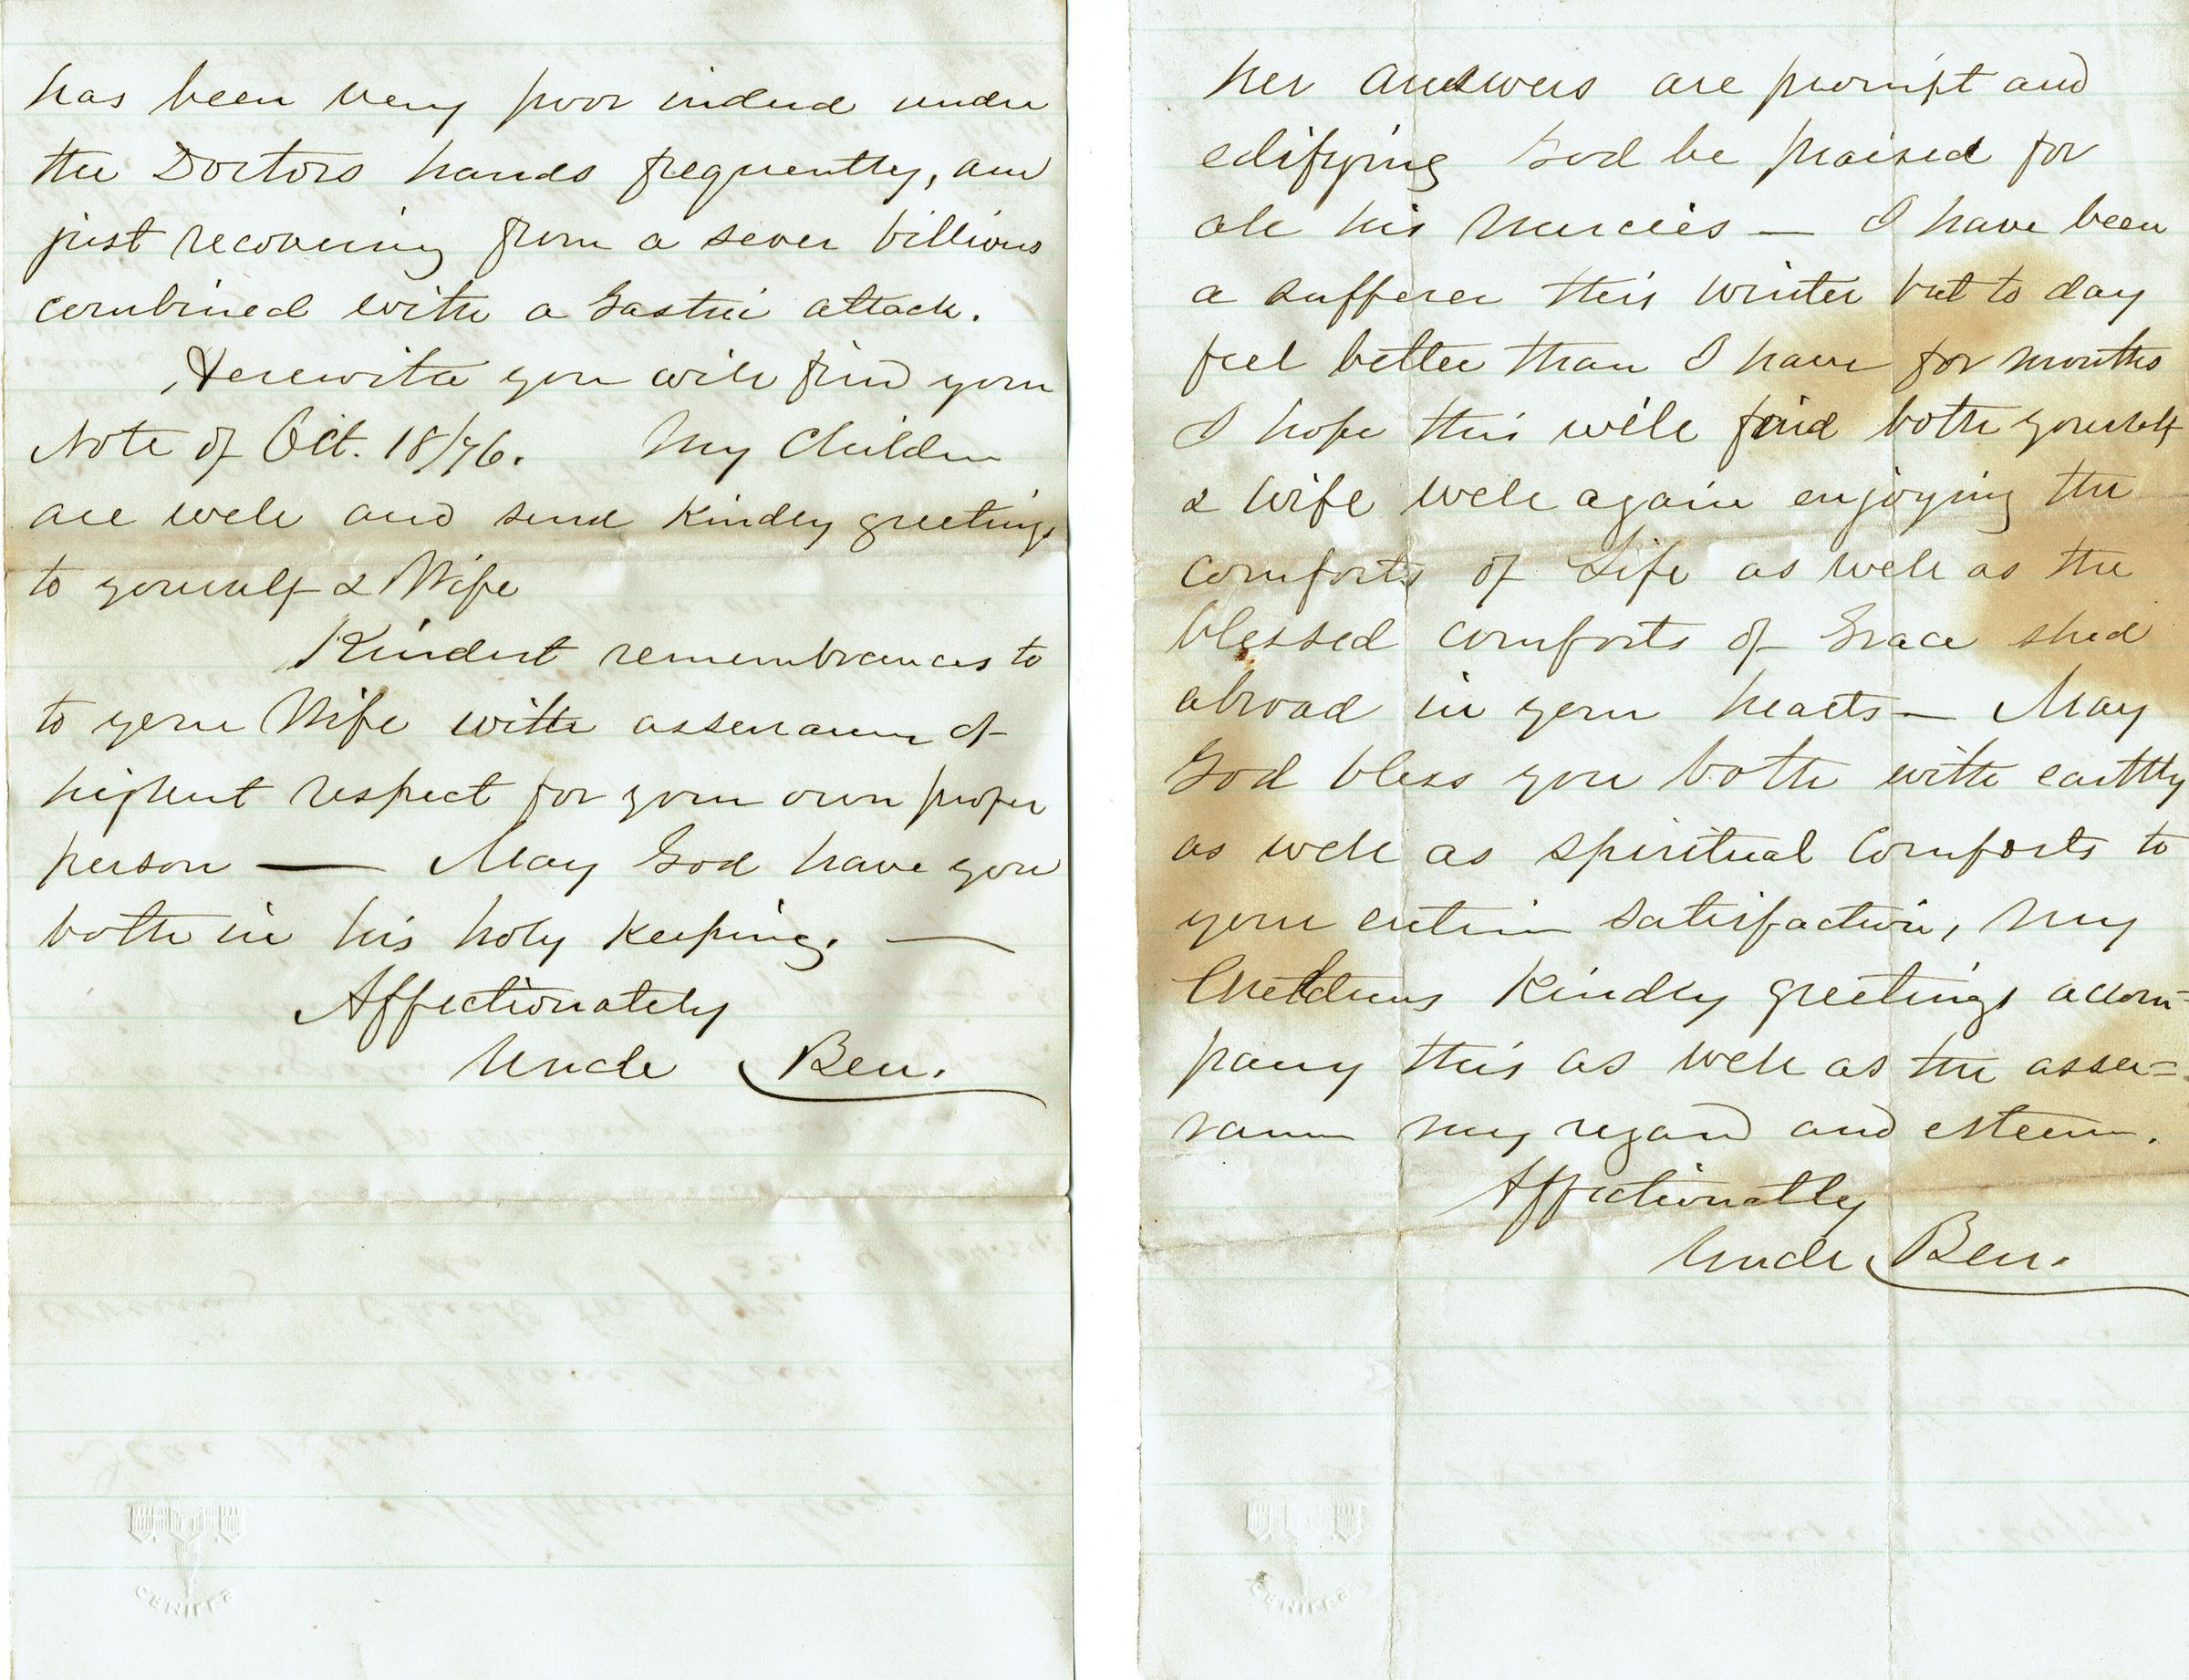 has been very poor indeed under
the Doctors hands frequently, am
just recovering from a sever billious
combined with a Gastric attack.
Herewith you will find your
Note of Oct. 18/76. My Children
are well and send kindly greetings
to yourself & Wife
Kindest remembrances to
to your Wife with assurance of
highest respect for your own proper
person — May God have you
both in his holy keeping. —
Affectionately
Uncle Ben.
her answers are prompt and
edifying God be praised for
all his Mercies — I have been
a sufferer this winter but to day
feel better than I have for months
I hope this will find both yourself
& Wife well again enjoying the
comforts of Life as well as the
blessed comforts of Grace shed
abroad in your hearts — May
God bless you both with earthly
as well as spiritual comforts to
your entire satisfaction, My
Childrens kindly greetings accom=
pany this as well as the assu=
rance my regard and esteem.
Affectionatly
Uncle Ben.